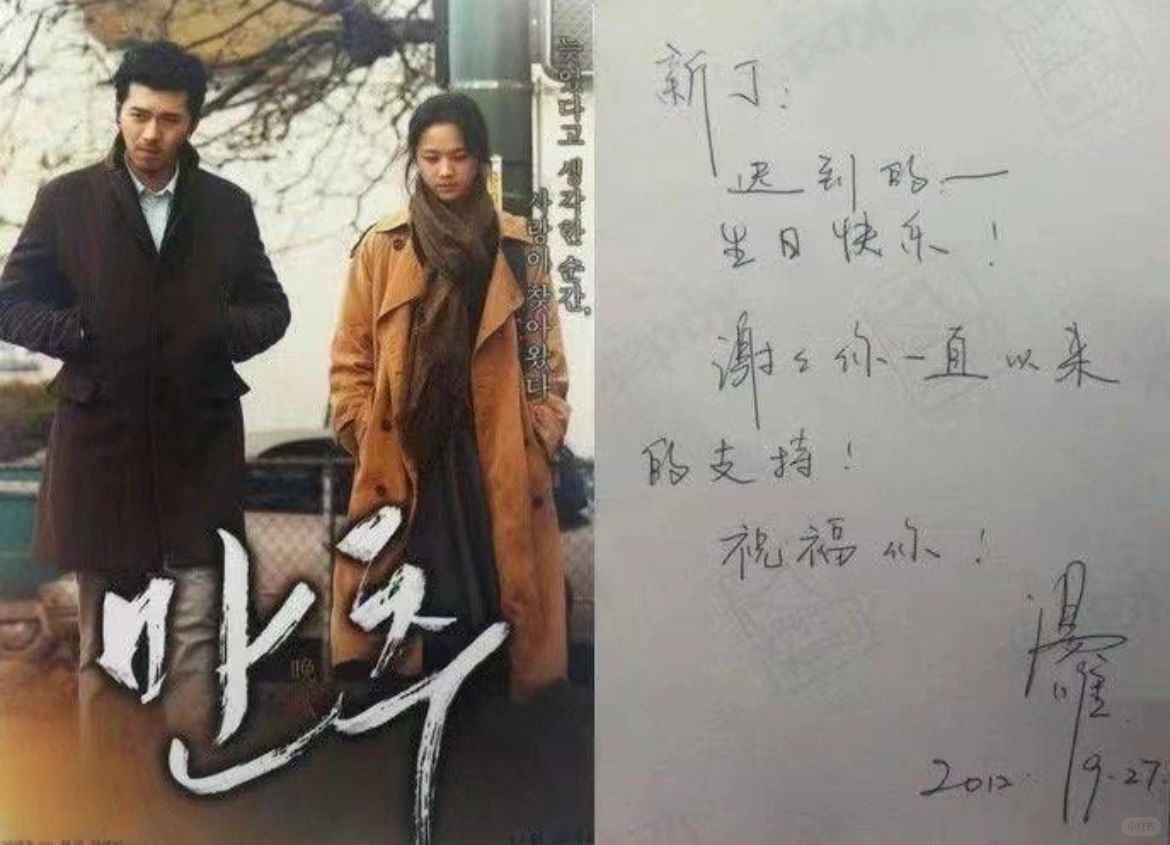 늦었다고 생각한 순간,
사랑이 찾아왔다
만추
晚
新丁:
迟到的——
生日快乐!
谢々你一直以来
的支持!
祝福你!
湯唯
2012. 9.27.
小红书